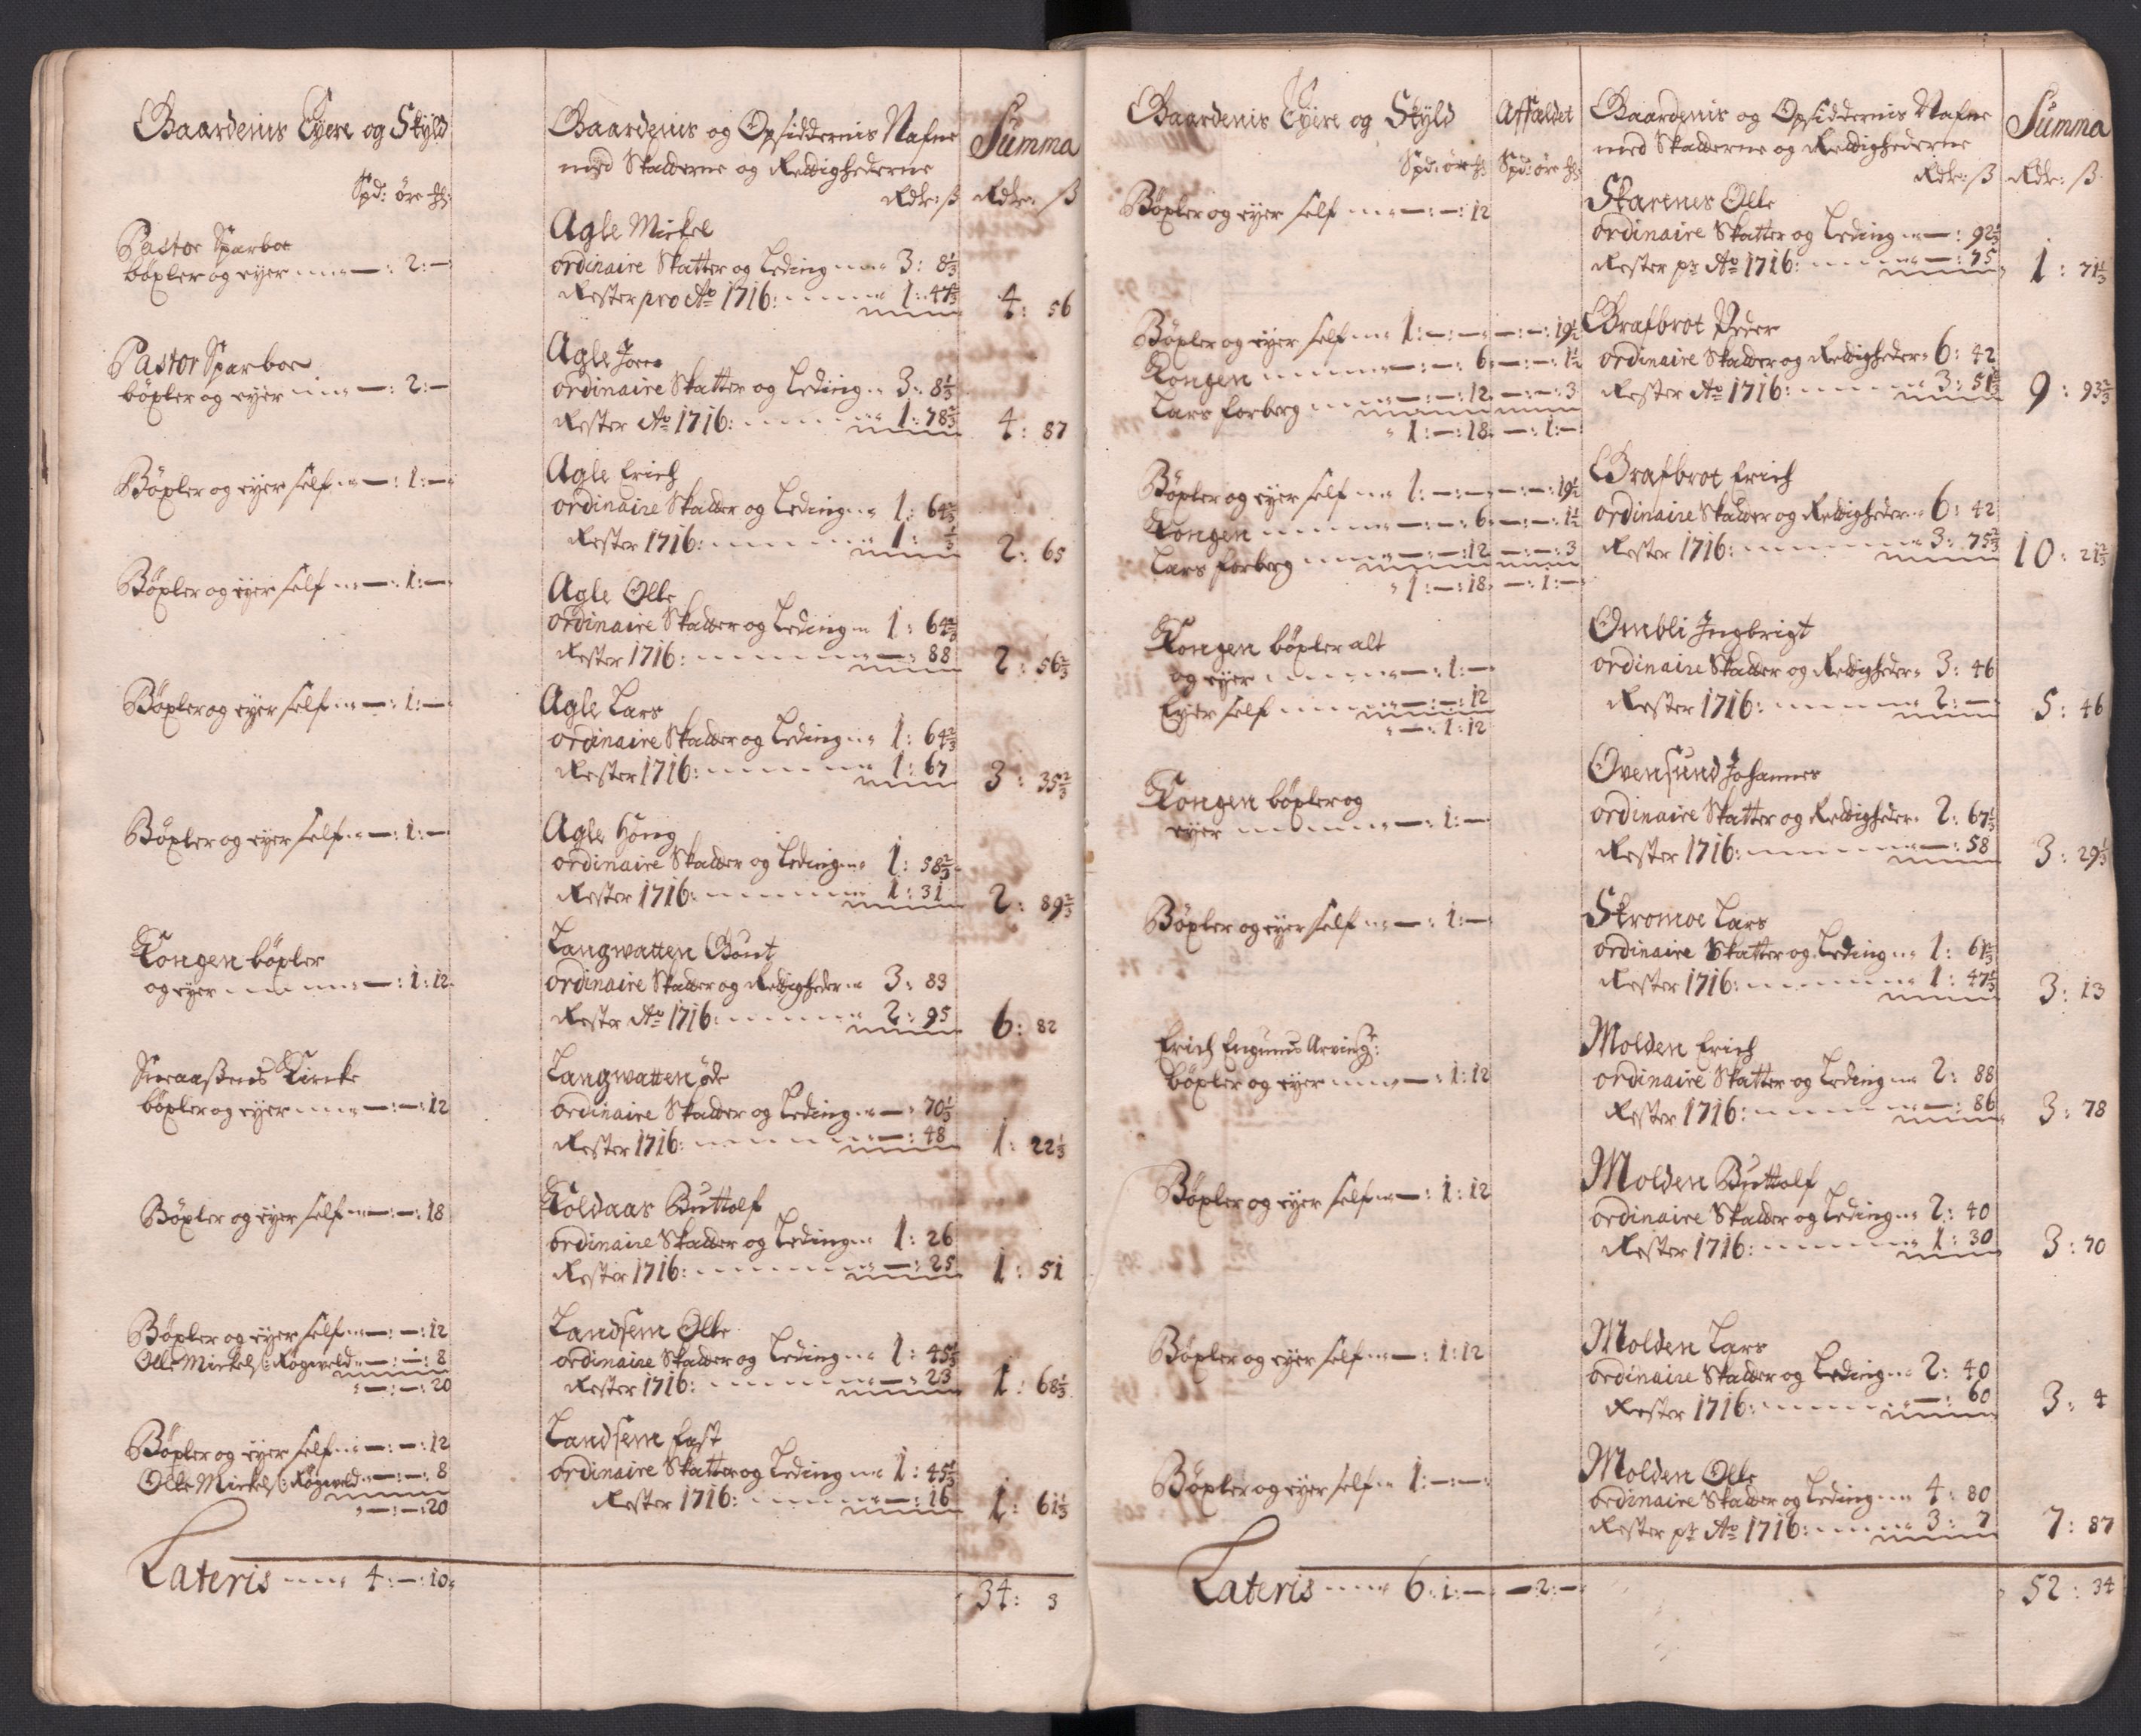 Gaardenis Eyere og Skyld
Spd: öre
Gaardenis og Opsiddernis Nafne
med Skatterne og Rettighederne
Rdlr: ß
Summa
Rdlr: ß
Pastor Sparboe
böxler og eyer — : 2 : —
Agle Mickel
ordinaire Skatter og Leding 3 : 8 1/3
Rester pro Ao 1716: 1 : 47 2/3
4 : 56
Pastor Sparboe
böxler og eyer — : 2 : —
Agle Joen
ordinaire Skatter og Leding 3 : 8 1/3
Rester Ao 1716: 1 : 78 2/3
4 : 87
Böxler og eyer self — : 1 : —
Agle Erich
ordinaire Skatter og Leding 1 : 64 2/3
Rester 1716: 1 : 1/3
2 : 65
Böxler og eyer self — : 1 : —
Agle Olle
ordinaire Skatter og Leding 1 : 64 2/3
Rester 1716: — : 88
2 : 56 2/3
Böxler og eyer self — : 1 : —
Agle Lars
ordinaire Skatter og Leding 1 : 64 2/3
Rester 1716: 1 : 67
3 : 35 2/3
Böxler og eyer self — : 1 : —
Agle
ordinaire Skatter og Leding 1 : 58 2/3
Rester 1716: 1 : 31
2 : 89 2/3
Kongen böxler
og eyer — : 1 : 12
Langwatten
ordinaire Skatter og Rettigheder 3 : 83
Rester Ao 1716: 2 : 95
6 : 82
Sneaaßens Kircke
böxler og eyer — : — : 12
Langwatten öde
ordinaire Skatter og Leding — : 70 1/3
Rester 1716: — : 48
1 : 22 1/3
Böxler og eyer self — : — : 18
Koldaas Buttolf
ordinaire Skatter og Leding 1 : 26
Rester 1716: — : 25
1 : 51
Böxler og eyer self — : — : 12
Olle Mickels: — : — : 8
— : — : 20
Landsem Olle
ordinaire Skatter og Leding 1 : 45 1/3
Rester 1716: — : 23
1 : 68 1/3
Böxler og eyer self — : — : 12
Olle Mickels: — : — : 8
— : — : 20
Landsem
ordinaire Skatter og Leding 1 : 45 1/3
Rester 1716: — : 16
1 : 61 1/3
Lateris 4 : — : 10
34 : 3
Gaardenis Eyere og Skyld
Spd: öre
Affældet
Spd: öre
Gaardenis og Opsiddernis Nafne
med Skatterne og Rettighederne
Rdlr: ß
Summa
Rdlr: ß
Böxler og eyer self — : — : 12
Skarines Olle
ordinaire Skatter og Leding — : 92 1/3
Rester pr Ao 1716: — : 75
1 : 71 1/3
Böxler og eyer self 1 : — : — — : — : 19 1/2
Kongen — : — : 6 — : — : 1 1/2
Lars Forberg — : — : 12 — : — : 3
1 : — : 18 — : 1 : —
Grafbrot Peder
ordinaire Skatter og Rettigheder 6 : 42
Rester Ao 1716: 3 : 51 2/3
9 : 93 2/3
Böxler og eyer self 1 : — : — — : — : 19 1/2
Kongen — : — : 6 — : — : 1 1/2
Lars Forberg — : — : 12 — : — : 3
1 : — : 18 — : 1 : —
Grafbrot Erich
ordinaire Skatter og Rettigheder 6 : 42
Rester 1716: 3 : 75 2/3
10 : 21 2/3
Kongen böxler alt
og eyer — : 1 : —
Eyer self — : — : 12
— : 1 : 12
Ombli Ingbrigt
ordinaire Skatter og Rettigheder 3 : 46
Rester 1716: 2 : —
5 : 46
Kongen böxler og
eyer — : 1 : —
Ovensund Johannes
ordinaire Skatter og Rettigheder 2 : 67 1/3
Rester 1716: — : 58
3 : 29 1/3
Böxler og eyer self — : 1 : —
Skromoe Lars
ordinaire Skatter og Leding 1 : 61 2/3
Rester 1716: 1 : 47 1/3
3 : 13
Erich Arving:
böxler og eyer — : 1 : 12
Molden Erich
ordinaire Skatter og Leding 2 : 88
Rester 1716: — : 86
3 : 78
Böxler og eyer self — : 1 : 12
Molden Buttolf
ordinaire Skatter og Leding 2 : 40
Rester 1716: 1 : 30
3 : 70
Böxler og eyer self — : 1 : 12
Molden Lars
ordinaire Skatter og Leding 2 : 40
Rester 1716: — : 60
3 : 4
Böxler og eyer self 1 : — : —
Molden Olle
ordinaire Skatter og Leding 4 : 80
Rester pr Ao 1716: 3 : 7
7 : 87
Lateris 6 : 1 : — — 2 : —
52 : 34